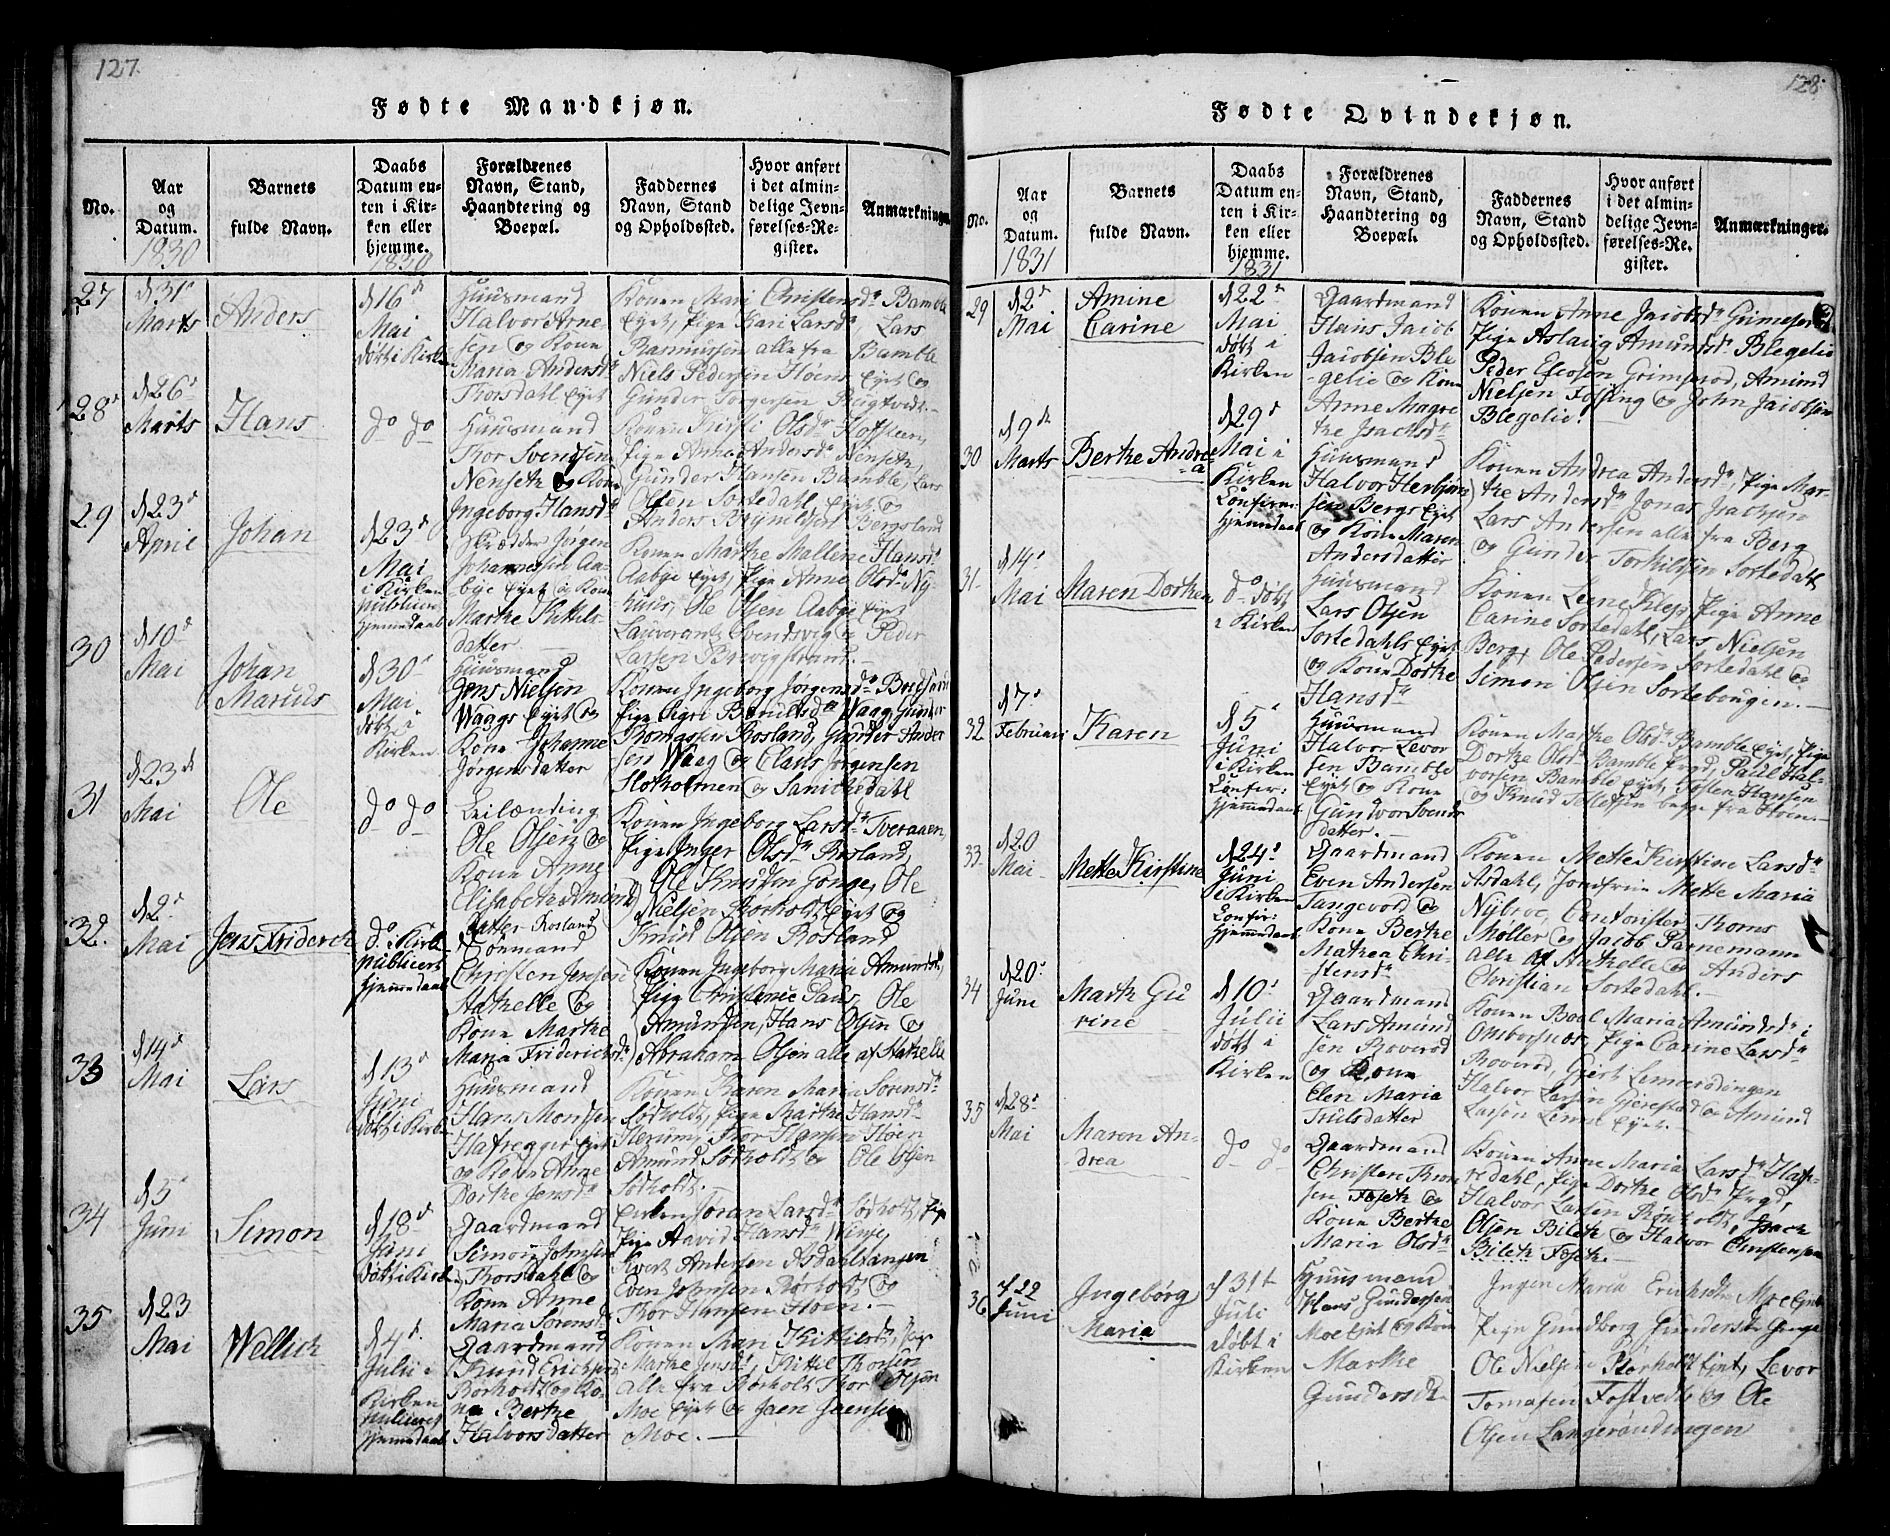 127.
Fødte Mandkjøn.
No.
Aar
og
Datum.
1830
Barnets
fulde Navn.
Daabs
Datum en-
ten i Kir-
ken eller
hjemme.
1830
Forældrenes
Navn, Stand,
Haandtering og
Boepæl.
Faddernes
Navn, Stand
og Opholdssted.
Hvor anført
i det almin-
delige Jevn-
førelses-Re-
gister.
Anmærkninger
27
d 31t
Marts
Anders
d 16de
Mai
døbt i Kirken
Huusmand
Halvor Arne-
sen og Kone
Maria Andersd.
Thorsdahl Eyet
Konen Mari Christensd. Bamble
Eyet, Pige Kari Larsd. Lars
Rasmussen alle fra Bamble
Niels Pedersen Høens Eyet og
Gunder Torgersen
28
d 26
Marts
Hans
do do
Huusmand
Thor Svendsen
Nenseth og Kone
Ingeborg Hansd.
Konen Kirsti Olsd.
Pige Anne Andersd. Nenseth,
Gunder Hansen Bamble, Lars
Olsen Sortedahl Eyet og
Anders Brynildsen Bergsland
29
d 23d
April
Johan
d 23d
Mai
i Kirken
publiceret
hjemmedaab
Skrædder Jørgen
Johannesen Aa-
bye Eyet og Kone
Marthe Kittils-
datter
Konen Marthe Mallene Hansd.
Aabye Eyet, Pige Anne Olsd. Ny-
huus, Ole Olsen Aabye Eyet
Lauverants Svendsvig og Peder
Larsen Brevigstrand.
30
d 10d
Mai
Johan
Marius
d 30
Mai
døbt i
Kirken
Huusmand
Jens Nielsen
Waags Eyet og
Kone Johanne
Jørgensdatter
Konen Ingeborg Jørgensd.
Pige Sigri Berultsd. Waag, Gunder
Thomassen Rosland, Gunder Ander
sen Waag og Claus Jørgensen
Slotholmen og Sanickedahl
31
d 23d
Mai
Ole
do do
Leilænding
Ole Olsen og
Kone Anne
Elisabeth Amund
datter Rosland
Konen Ingeborg Larsd. Tveraaen,
Pige Inger Olsd. Rosland,
Ole Knudsen Gonge, Ole
Nielsen Rørholt Eyet og
Knud Olsen Rosland
32.
d 2
Mai
Jens Friderich
do i Kirk
publicert
hjemmedaab
Christen Jensen
Stathelle og
Kone Marthe
Maria Friderichsd.
Konen Ingeborg Maria Amundsd.
Pige Christence Paus, Ole
Amundsen, Hans Olsen og
Abraham Olsen alle af Stathelle
33
d 14d
Mai
Lars
d 13d
Juni
døbt i Kirk
Huusmand
Hans Monssen
Hafregger Eyet
og Kone Anne
Dorthe Jensd.
Konen Karen Maria Sørensd.
Rødholt, Pige Marthe Hansd.
Herum, Thor Hansen Høen
Amund Sørholt og Ole Olsen
Sødholt.
34
d 5
Juni
Simon
d 18d
Juni
døbt i Kirk
Gaardmand
Simon Johnsen
Thorsdahl og
Kone Anne
Maria Sørensd.
Enken Jøran Larsd. Sødholt Pige
Pige Aavid Hansd. Vinje,
Kvert Andersen Asdahltangen
Even Johnsen Rørholt og
Thor Hansen Høen.
35
d 23
Mai
Wellich
d 4
Julii i
Kirken
publiceret
hjemmedaab
Gaardmand
Knud Erichsen
Rørholt og Ko-
ne Berthe
Halvorsdatter
Konen Aaan Kittilsd., Pige
Marthe Jensd., Kittil Thorsen
alle fra Rørholt Thor Olsen
Moe Eyet og Jaen Jaensen
Moe.
128
Fødte Qvindekjøn.
No.
Aar
og
Datum.
1831
Barnets
fulde Navn.
Daabs
Datum en-
ten i Kir-
ken eller
hjemme.
1831
Forældrenes
Navn, Stand,
Haandtering og
Boepæl.
Faddernes
Navn, Stand
og Opholdssted.
Hvor anført
i det almin-
delige Jevn-
førelses-Re-
gister.
Anmærkninger.
29
d 2d
Mai
Amine
Carine
d 22d
Mai
døbt i
Kirken
Gaardmand
Hans Jacob
Jacobsen Ble-
gelie og Kone
Anne Magre
the Isachsd.
Konen Anne Jacobsd. Grimserød
Pige Aslaug Amundsd. Blegelie
Peder Efvosen Grimserød, Amund
Nielsen Fossing og John Jacobsen
Blegelie.
30
d 9de
Marts
Berthe Andre-
a
d 29
Mai i
Kirken
Confirm:
hjemmedaab
Huusmand
Halvor Herbjørn-
sen Bergs Eyet
og Kone Maren
Andersdatter
Konen Andrea Andersd., Pige Mar-
the Andersd. Jonas Isachsen
Lars Andersen alle fra Berg
og Gunder Torkildsen Sortedahl
31
d 14
Mai
Maren Dorthea
do døbt
i Kirken
Huusmand
Lars Olsen
Sortedahls Eyet
og Kone Dorthe
Hansd.
Konen Lene Klep, Pige Anne
Carine Sortedahl, Lars Nielsen
Berg, Ole Pedersen Sortedahl og
Simon Olsen Sortebougen.
32
d 7
Februari
Karen
d 5
Juni
i Kirken
Confir:
hjemmedaab
Huusmand
Halvor Levor
sen Bamble
Eyet og Kone
Gundvor Svends
datter.
Konen Marthe Olsd. Bamble Eyet, Pige
Dorthe Olsd. Bamble Prgd, Paul Hal-
vorsen Bamble Eyet, Tosten Hansen
og Knud Tellefsen begge fra Høen.
33
d 20
Mai
Mette Kirstine
d 24
Juni
i Kirken
Confir:
hjemmedaab
Gaardmand
Even Andersen
Tangevord og
Kone Berthe
Mathea Chri-
stensd.
Konen Mette Kirstine Larsd.
Asdahl, Jomfrue Mette Maria
Nybroe, Contorister Thoms
Møller og Jacob Parnemann
alle af Stathelle og Anders
Christian Sortedahl.
34
d 20
Juni
Marth Gu
rine
d 10
Julii
døbt i
Kirken
Gaardmand
Lars Amund
sen Boverød
og Kone
Elen Maria
Trulsdatter
Konen Boel Maria Amundsd. i
Ombordsnæs, Pige Carine Larsd.
Boverød, Gjert Lennerødingen
Halvor Larsen Gjerestad og Amund
Larsen Linne Eyet.
35
d 28
Mai
Maren An-
drea
do do
Gaardmand
Christen Thor
sen Foseth og
Kone Berthe
Maria Olsd.
Konen Anne Maria Larsd. Haf-
redahl, Pige Dorthe Olsd. Prgd,
Halvor Larsen Rønholt, Isach
Olsen Bileth og Halvor Christensen
Bileth Foseth.
36
d 22
Juni
Ingebørg
Maria
d 31t
Juli
døbt i
Kirken
Huusmand
Hans Gundersen
Moe Ejet og Kone
Marthe
Gundersdt.
Ingen Maria Erichsdtr Moe Ejet
Pige Gundborg Gundersdt. Gonge
Ole Nielsen Rørholt Ejet, Levor
Tomasen Fostvedt og Ole
Olsen Langerøndningen